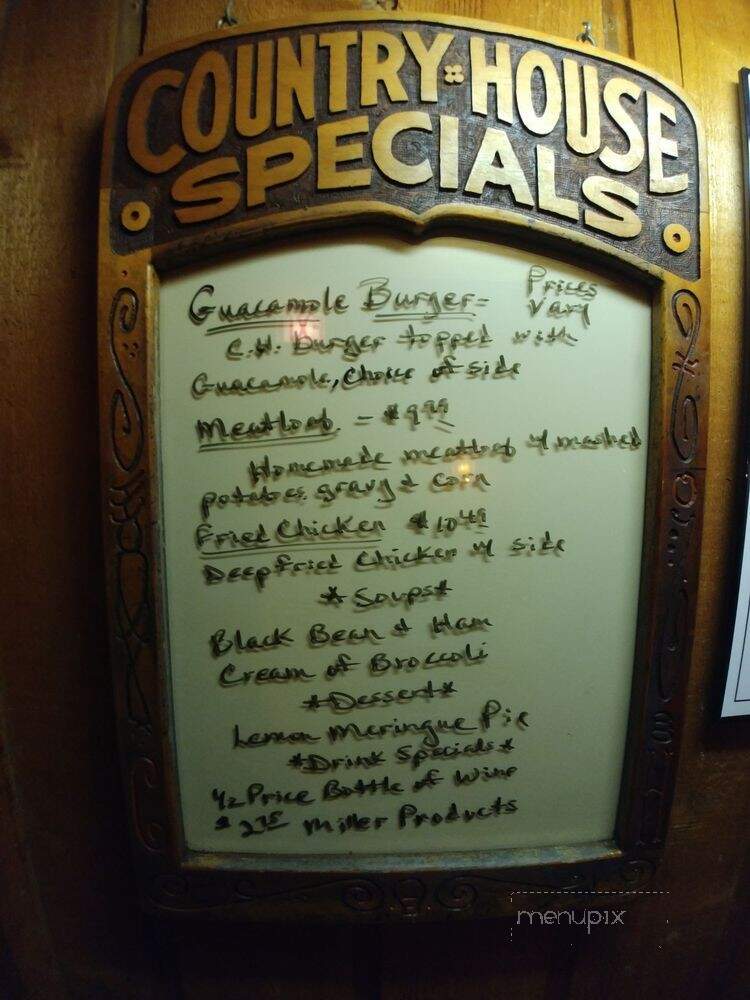 COUNTRY HOUSE
SPECIALS
Guacamole Burger = Prices Vary
C.H. Burger topped with
Guacamole, Choice of side
Meatloaf - $9.99
Homemade meatloaf w/ mashed
potatoes gravy & corn
Fried Chicken $10.49
Deepfried Chicken w/ side
*Soups*
Black Bean & Ham
Cream of Broccoli
*Dessert*
Lemon Meringue Pie
*Drink Specials*
1/2 Price Bottle of Wine
$2.75 Miller Products
menupix